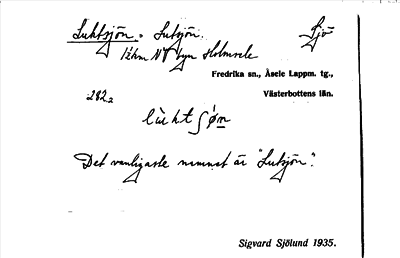 Luktsjön. Lutsjön. Sjö
12km NV byn Holmsele
Fredrika sn., Åsele Lappm. tg.,
Västerbottens län.
282
lùktʃǿn
Det vanligaste namnet är "Lutsjön".
Sigvard Sjölund 1935.